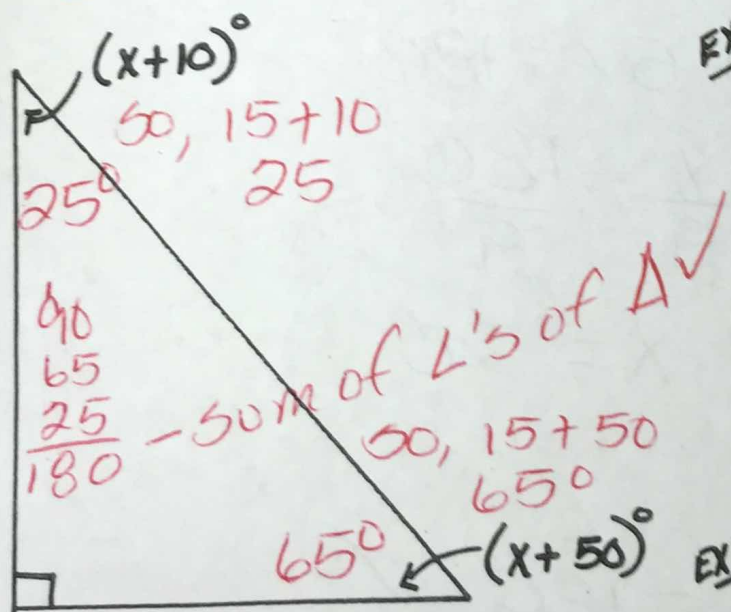 (x+10)°
EX
so, 15+10
25
25°
90
65
25
180 - sum of L's of Δ ✓
so, 15+50
65°
65°
(x+50)°
EX